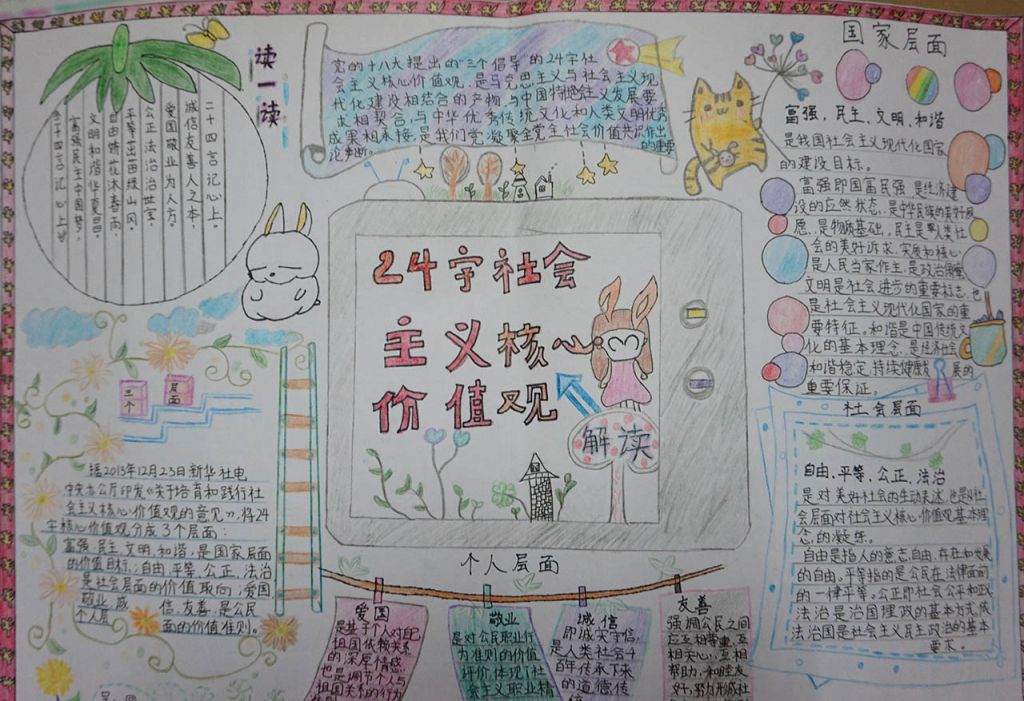 读一读
二十四言记心上。
诚信友善人之本,
爱国敬业为人方。
公正法治治世宝,
自由
文明和谐华夏
富强民主中国梦,
二十四言记心上
党的十八大提出的"三个倡导"的24字社
会主义核心价值观,是马克思主义与社会主义现
代化建设相结合的产物,与中国特色社会主义发展要
求相契合,与中华优秀传统文化和人类文明优秀
成果相承接,是我们党凝聚全党全社会价值共识作出
的重要
论断。
24字社会
主义核心
价值观
解读
三个
层面
据2013年12月23日新华社电
中央办公厅印发《关于培育和践行社
会主义核心价值观的意见》,将24
字核心价值观分成3个层面:
富强、民主、文明、和谐,是国家层面
的价值目标;自由、平等、公正、法治
是社会层面的价值取向;爱国、
敬业、诚信、友善,是公民
个人层面的价值准则。
国家层面
富强,民主,文明,和谐
是我国社会主义现代化国家
的建设目标。
富强即国富民强,是经济建
设的应然状态,是中华民族的美好夙
愿,是物质基础。民主是人类社
会的美好诉求,实质和核心
是人民当家作主,是政治
文明是社会进步的重要标志,也
是社会主义现代化国家的重
要特征。和谐是中国传统文
化的基本理念,是经济社会
和谐稳定,持续健康发展的
重要保证。
社会层面
自由、平等、公正、法治
是对美好社会的生动表述,也是从社
会层面对社会主义核心价值观基本理
念的凝练。
自由是指人的意志自由、存在和发展
的自由。平等指的是公民在法律面前
的一律平等。公正即社会公平和正义
法治是治国理政的基本方式,依
法治国是社会主义民主政治的基本
要求。
个人层面
爱国
是基于个人对自己
祖国依赖关系
的深厚情感
也是调节个人与
祖国关系的行为
敬业
是对公民职业行
为准则的价值
评价,体现了社
会主义职业精
诚信
即诚实守信,
是人类社会千
百年传承下来
的道德传
友善
强调公民之间
应互相尊重、互
相关心、互相
帮助,和睦友
好,努力形成社